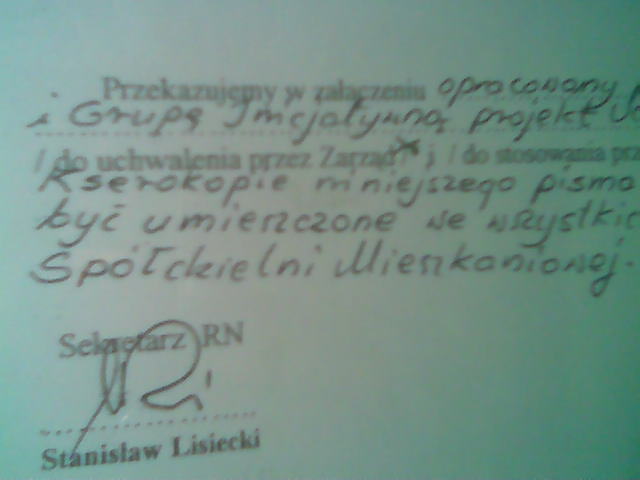 Przekazujemy w załączeniu opracowany
i Grupę Inicjatywną projekt
/ do uchwalenia przez Zarząd / i / do stosowania prz
Kserokopie niniejszego pisma
być umieszczone we wszystkic
Spółdzielni Mieszkaniowej.
Sekretarz RN
Stanisław Lisiecki